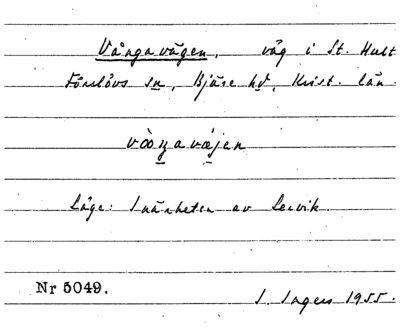 Vångavägen, väg i St. Hult
Förslövs sn, Bjäre hd, Krist. län.
Läge: I närheten av Servik
Nr 5049.
I. Ingers 1955.